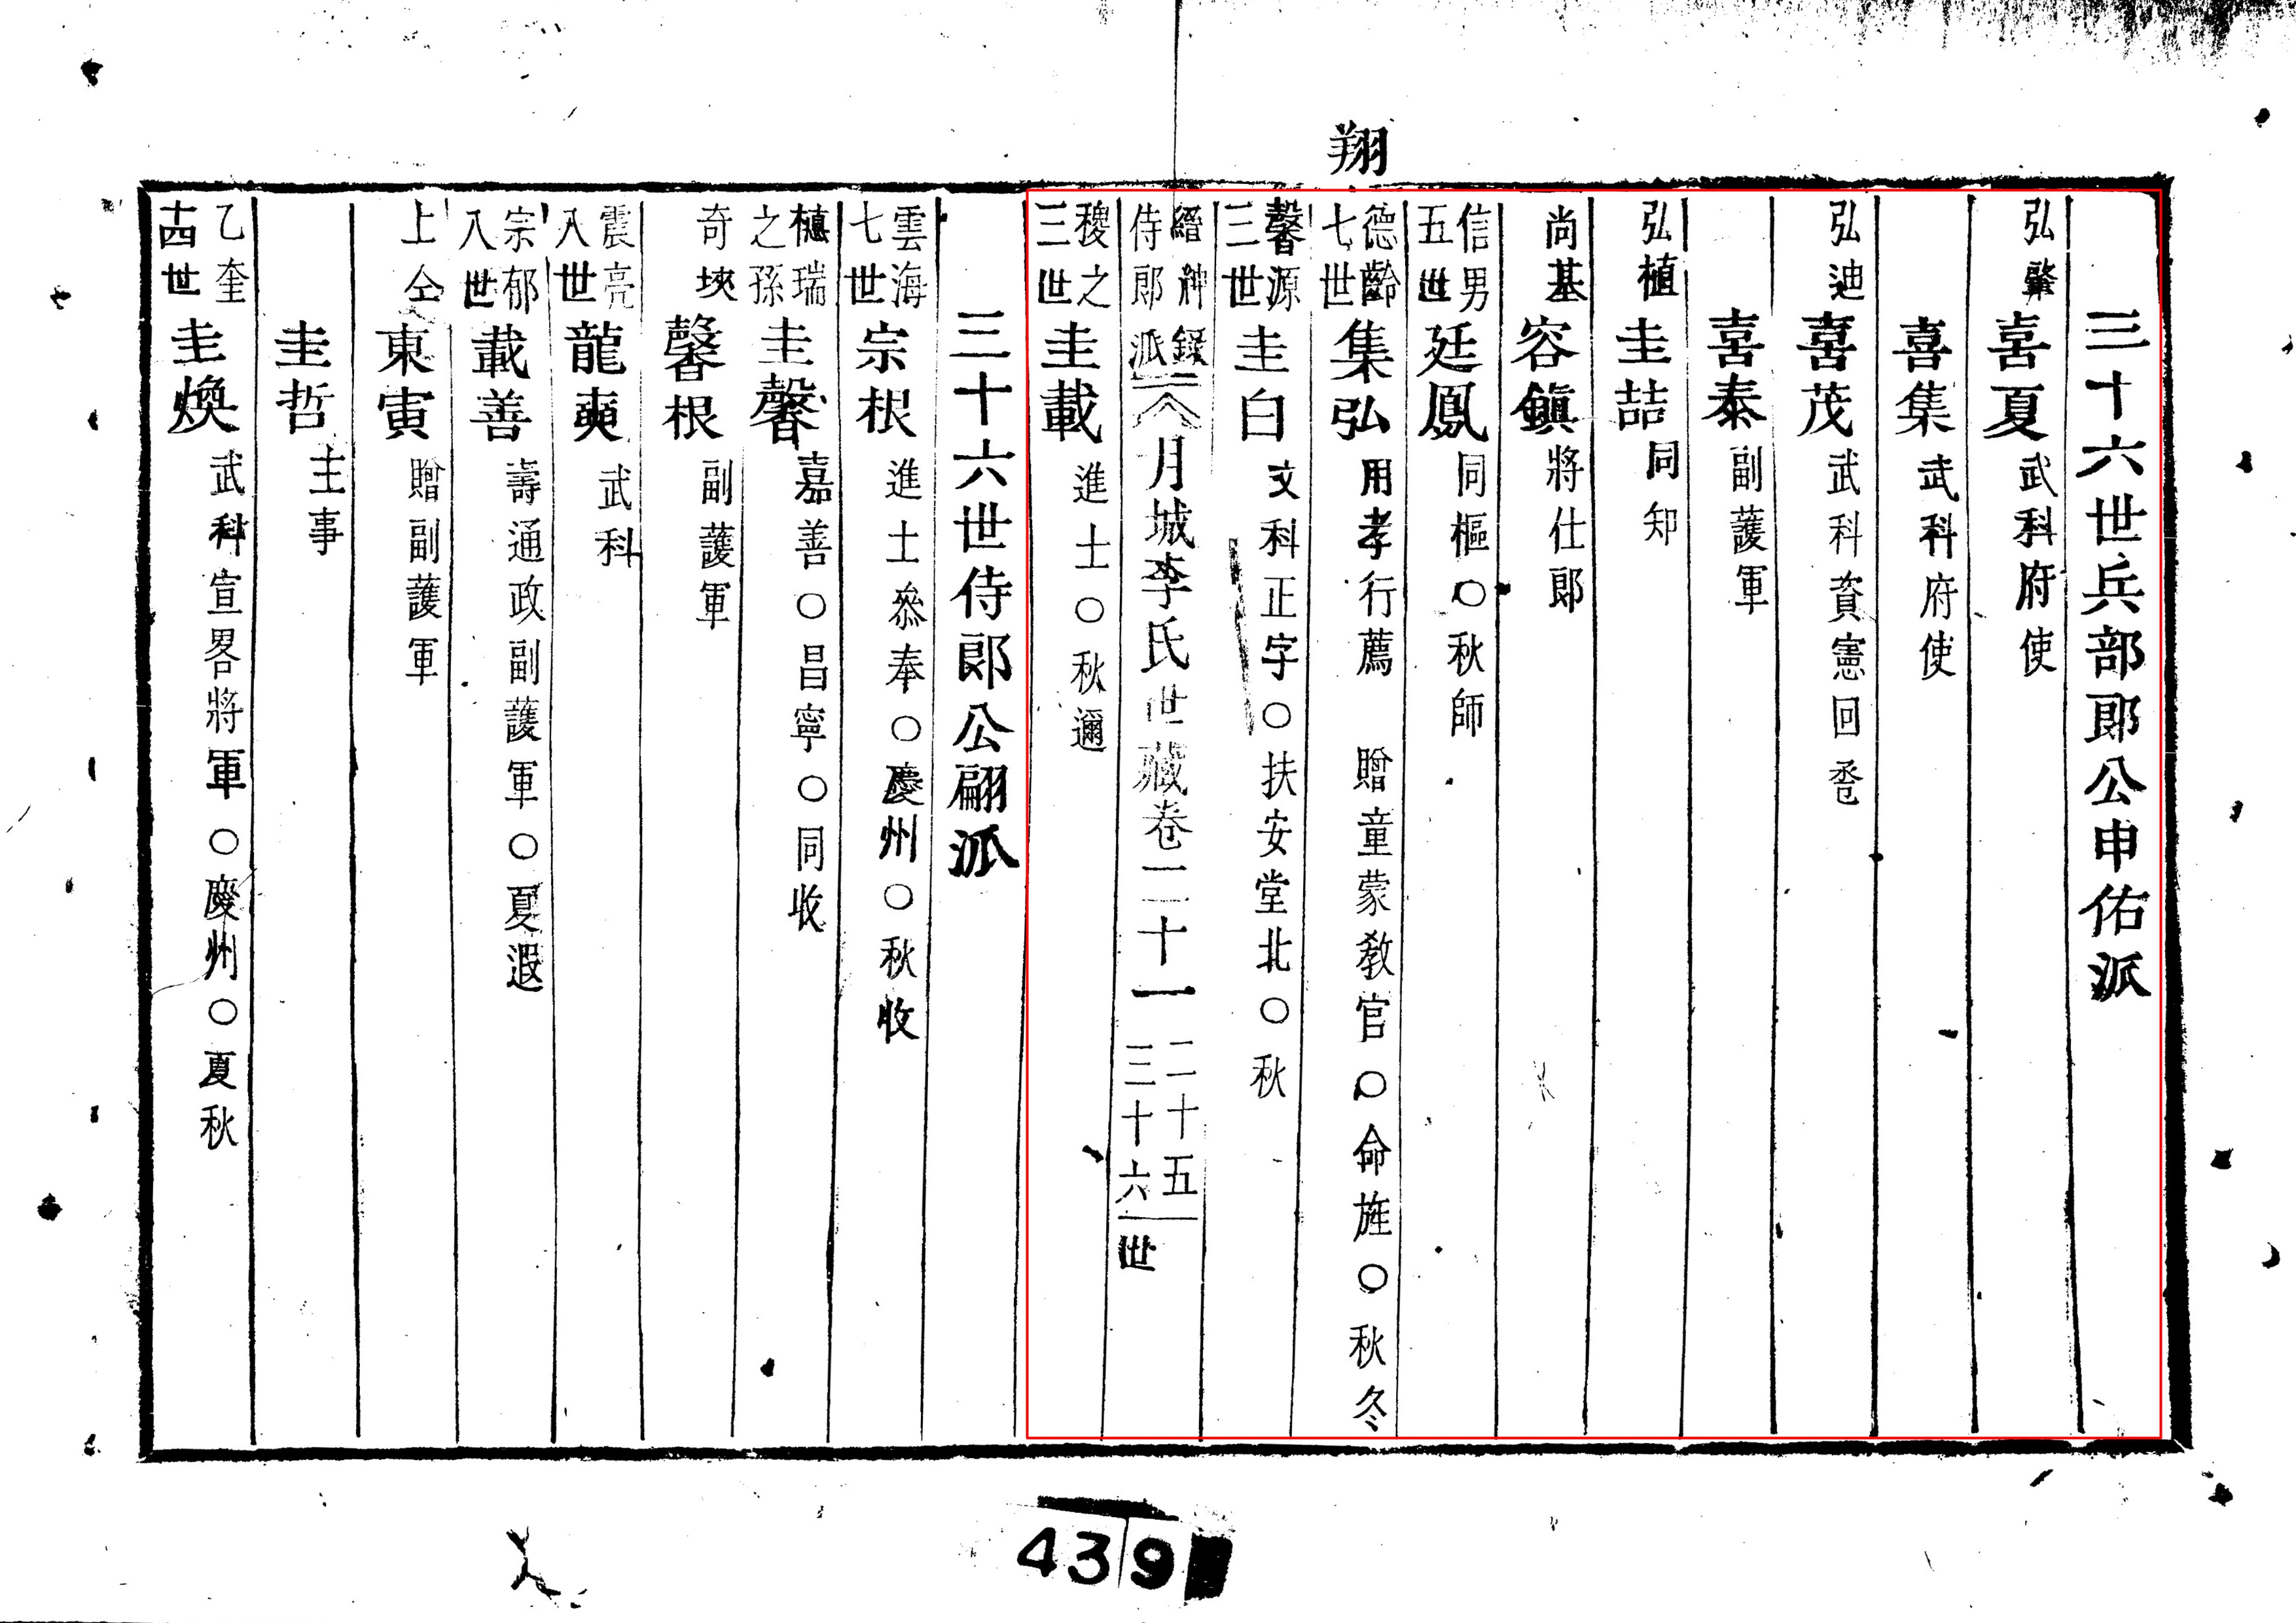 翔
三十六世兵部郎公申佑派
弘肇 喜夏 武科府使
喜集 武科府使
弘迪 喜茂 武科資憲回巹
喜泰 副護軍
弘植 圭喆 同知
尚基 容鎭 將仕郎
信男五世 廷鳳 同樞○秋師
德齡七世 集弘 用孝行薦 贈童蒙教官○命旌○秋冬
馨源三世 圭白 文科正字○扶安堂北○秋
縉紳錄 侍郎派 月城李氏世藏卷二十一 二十五 三十六世
稷之三世 圭載 進士○秋邇
三十六世侍郎公翩派
雲海七世 宗根 進士叅奉○慶州○秋收
樾瑞之孫 圭馨 嘉善○昌寧○同收
奇塽 馨根 副護軍
震亮八世 龍奭 武科
宗郁八世 載善 壽通政副護軍○夏遐
上仝 東寅 贈副護軍
圭哲 主事
乙奎十四世 圭煥 武科宣畧將軍○慶州○夏秋
439